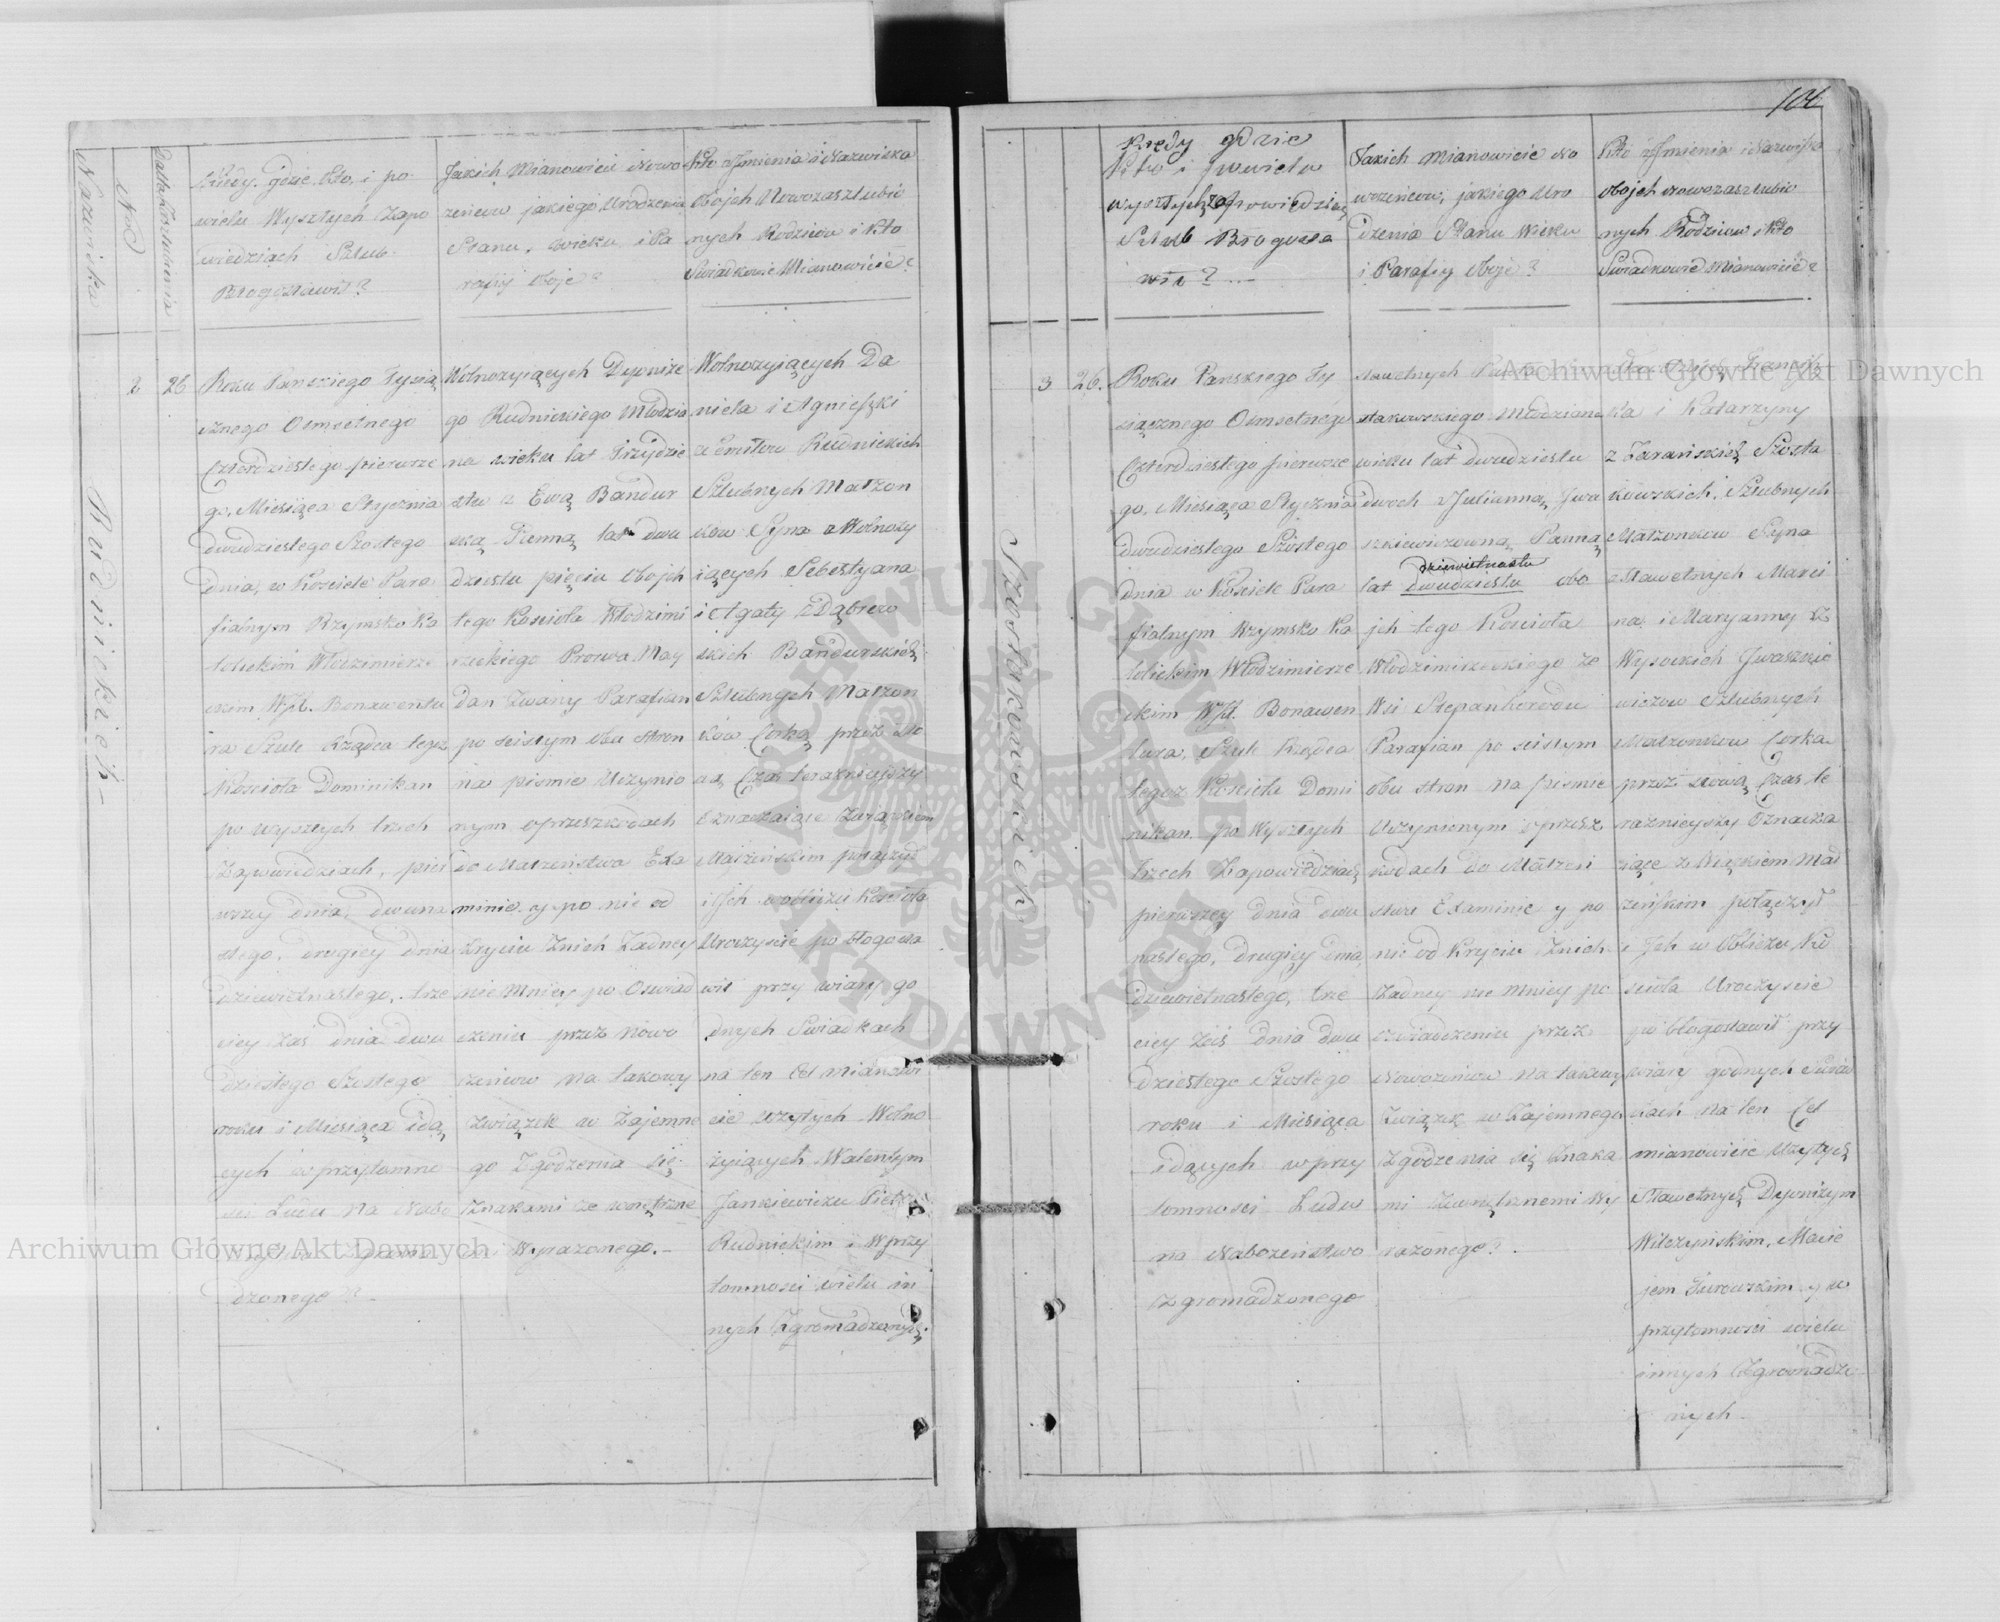 Nazwiska
Nrod
Datta Czterdziesta
Kiedy, gdzie, Kto, i po
wielu Wyszłych Zapo
wiedziach Szlub
Błogosławił?
Jakich Mianowicie Nowo
zeńcow jakiego Urodzenia
Stanu, wieku, i Pa
rafij Oboje?
Kto z Jmienia i Nazwiska
Obojch Nowozaszlubio
nych Rodziców i Kto
Swiadkowie Mianowicie?
Rudnickich
2
26
Roku Panskiego Tysią
cznego Osmsetnego
Czterdziestego pierwsze
go, Miesiąca Stycznia
dwudziestego Szostego
dnia, w Kosciele Para
fialnym Rzymsko Ka
tolickim Włodzimierz
ckim WJX. Bonawentu
ra Szule Rządca tegoż
Kościoła Dominikan
po wyszłych trzech
Zapowiedziach, pier
wszy dnia, dwuna
stego, drugiey dnia
dziewietnastego, trze
ciey zas dnia dwu
dziestego Szostego
roku i Miesiąca idą
cych w przytomno
sci Ludu na Nabo
dzonego
Wolnozyiących Dyonize
go Rudnickiego Młodzia
na wieku lat Trzydzie
stu z Ewą Bandur
ską Panną lat dwu
dziestu pięciu Obojch
tego Kościoła Włodzimi
rzckiego Prosw. May
dan Zwany Parafian
po scisłym obu stron
na pismie Uczynio
nym o przeszkodach
do Małżeństwa Exa
minie, y po nie od
kryciu Znich Zadney
nie mniey po Oswiad
czeniu przez Nowo
zencow na takowy
Związek w Zajemne
go Zgodzenia się
Znakami ze wnętrzne
mi Wyrazonego.
Wolnozyiących Da
niela i Agnieszki
Rudnickich
Szlubnych Małzon
kow Syna z Wolnozy
iących Sebestyana
i Agaty z Dąbrow
skich Bandurskich
Szlubnych Małzon
ków Corką, przez Sło
wą Czas teraznieyszy
Oznaczaiące Związkiem
Małżeńskim połączył
i Jch w obliczu Kosciola
Uroczyscie po błogosła
wił przy wiary go
dnych Swiadkach
na ten Cel mianowi
cie uzytych Wolno
żyiących Walentym
Jankiewiczu Piet
Rudnickim i w przy
tomnosci wielu in
nych Zgromadzonych.
104
Kiedy gdzie
Kto i powielu
wyszłych Zapowiedziach
Szlub Błogosła
wił?
Jakich Mianowicie No
wozeńcow, jakiego Uro
dzenia Stanu Wieku
i Parafiy Oboje?
Kto z Jmienia i Nazwiska
obojch Nowozaszlubio
nych Rodziców i Kto
Swiadkowie Mianowicie?
Szostakowskich
3
26.
Roku Panskiego Ty
siącznego Osmsetnego
Czterdziestego pierwsze
go, Miesiąca Stycznia
dwudziestego Szóstego
dnia w Kościele Para
fialnym Rzymsko Ka
tolickim Włodzimierz
ckim WJX. Bonawen
tura, Szyle Rządca
tegoż Kościoła Domi
nikan. po Wyszłych
trzech Zapowiedziach
pierwszey dnia dwu
nastego, drugiey dnia
dziewietnastego, trze
ciey zaś dnia dwu
dziestego Szostego
roku i Miesiąca
idących w przy
tomnosci Ludu
na Nabozenstwo
Zgromadzonego
Sławetnych
stakowskiego Młodziana
wieku lat dwudziestu
dwoch z Julianną Jwa
szkiewiczowną Panną
dziewietnastu
lat dwudziestu obo
jch tego Kościoła
Włodzimirzckiego ze
Wsi Stepankowodu
Parafian po scisłym
obu stron na pismie
Uczynionym o przesz
kodach do Małzen
stwa Examinie y po
nie od Kryciu Znich
Zadney nie mniey po
oswiadczeniu przez
Nowozenców na takowy
Związek w Zajemnego
Zgodzenia się Znaka
mi Zewnętrznemi Wy
razonego.
ka i Katarzyny
z Zaranskich Szosta
kowskich, Szlubnych
Małzonkow Syna
z Sławetnych Marci
na, i Maryanny z
Wysockich Jwaszkie
wiczow Szlubnych
Małzonkow Corką
przez słową Czas te
raznieyszy Oznacza
iące Związkiem Mał
żeńskim połączył
i Jch w Obliczu Ko
scioła Uroczyscie
po błogosławił przy
wiary godnych Swiad
kach na ten Cel
mianowicie Uzytych
Sławetnych Dyonizym
Wilczyńskim, Macie
jem Turowskim y w
przytomnosci wielu
innych Zgromadzo
nych
Archiwum Główne Akt Dawnych
Archiwum Główne Akt Dawnych
ARCHIWUM GŁÓWNE AKT DAWNYCH